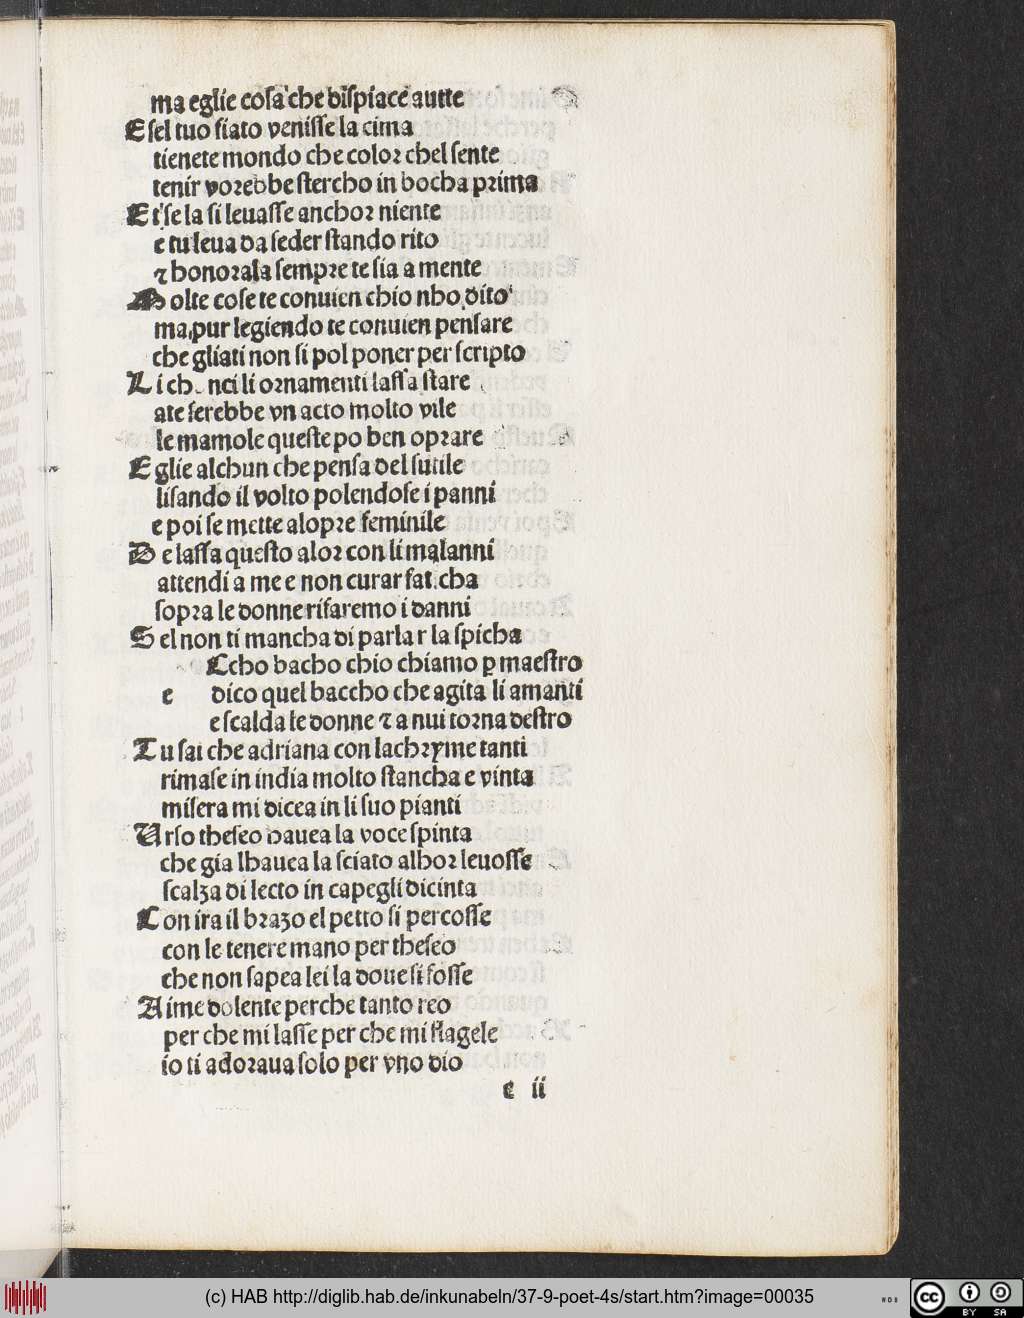 ma eglie cosa che dispiace a tutte
E sel tuo fiato venisse la cima
tienete mondo che color chel sente
tenir vorebbe stercho in bocha prima
Et se la si leuasse anchor niente
e tu leua da seder stando rito
⁊ honorala sempre te sia a mente
Molte cose te conuien chio nho dito
ma pur legiendo te conuien pensare
che gliati non si pol poner per scripto
Li nci li ornamenti lassa stare
ate serebbe vn acto molto vile
le mamole queste po ben oprare
Eglie alchun che pensa del sutile
lisando il volto polendose i panni
e poi se mette alopre feminile
De lassa questo alor con li malanni
attendi a me e non curar faticha
sopra le donne rifaremo i danni
Sel non ti mancha di parlar la spicha
Ccho bacho chio chiamo ꝑ maestro
e dico quel baccho che agita li amanti
e scalda le donne ⁊ a nui torna destro
Tu sai che adriana con lachryme tanti
rimase in india molto stancha e vinta
misera mi dicea in li suo pianti
Vrso theseo hauea la voce spinta
che gia lhauea lasciato alhor leuosse
scalza di lecto in capegli dicinta
Con ira il brazo el petto si percosse
con le tenere mano per theseo
che non sapea lei la doue si fosse
Aime dolente perche tanto reo
per che mi lasse per che mi flagele
io ti adoraua solo per vno dio
e ii
(c) HAB http://diglib.hab.de/inkunabeln/37-9-poet-4s/start.htm?image=00035
cc BY SA